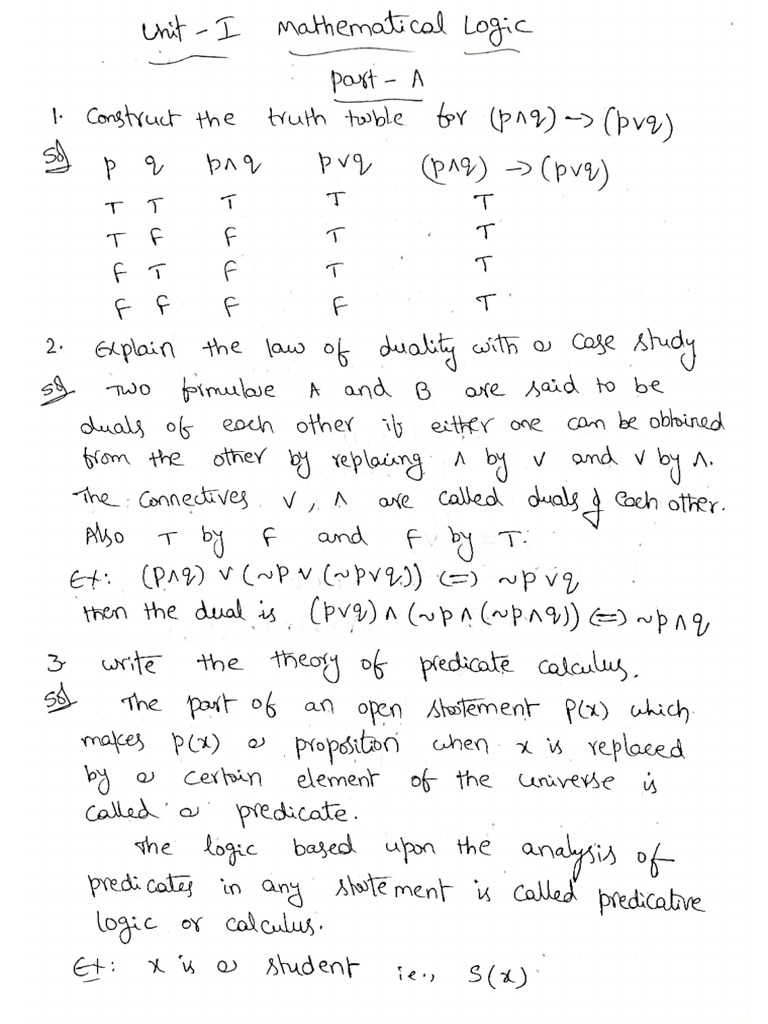 Unit - I Mathematical Logic
Part - A
1. Construct the truth table for (p∧q) → (p∨q)
Sol p q p∧q p∨q (p∧q) → (p∨q)
T T T T T
T F F T T
F T F T T
F F F F T
2. Explain the law of duality with a case study
Sol Two formulae A and B are said to be
duals of each other if either one can be obtained
from the other by replacing ∧ by ∨ and ∨ by ∧.
The connectives ∨, ∧ are called duals of each other.
Also T by F and F by T.
Ex: (p∧q) ∨ (~p ∨ (~p∨q)) <=> ~p∨q
then the dual is (p∨q) ∧ (~p ∧ (~p∧q)) <=> ~p∧q
3. Write the theory of predicate calculus.
Sol The part of an open statement P(x) which
makes P(x) a proposition when x is replaced
by a certain element of the universe is
called a predicate.
The logic based upon the analysis of
predicates in any statement is called predicative
logic or calculus.
Ex: x is a student i.e., S(x)